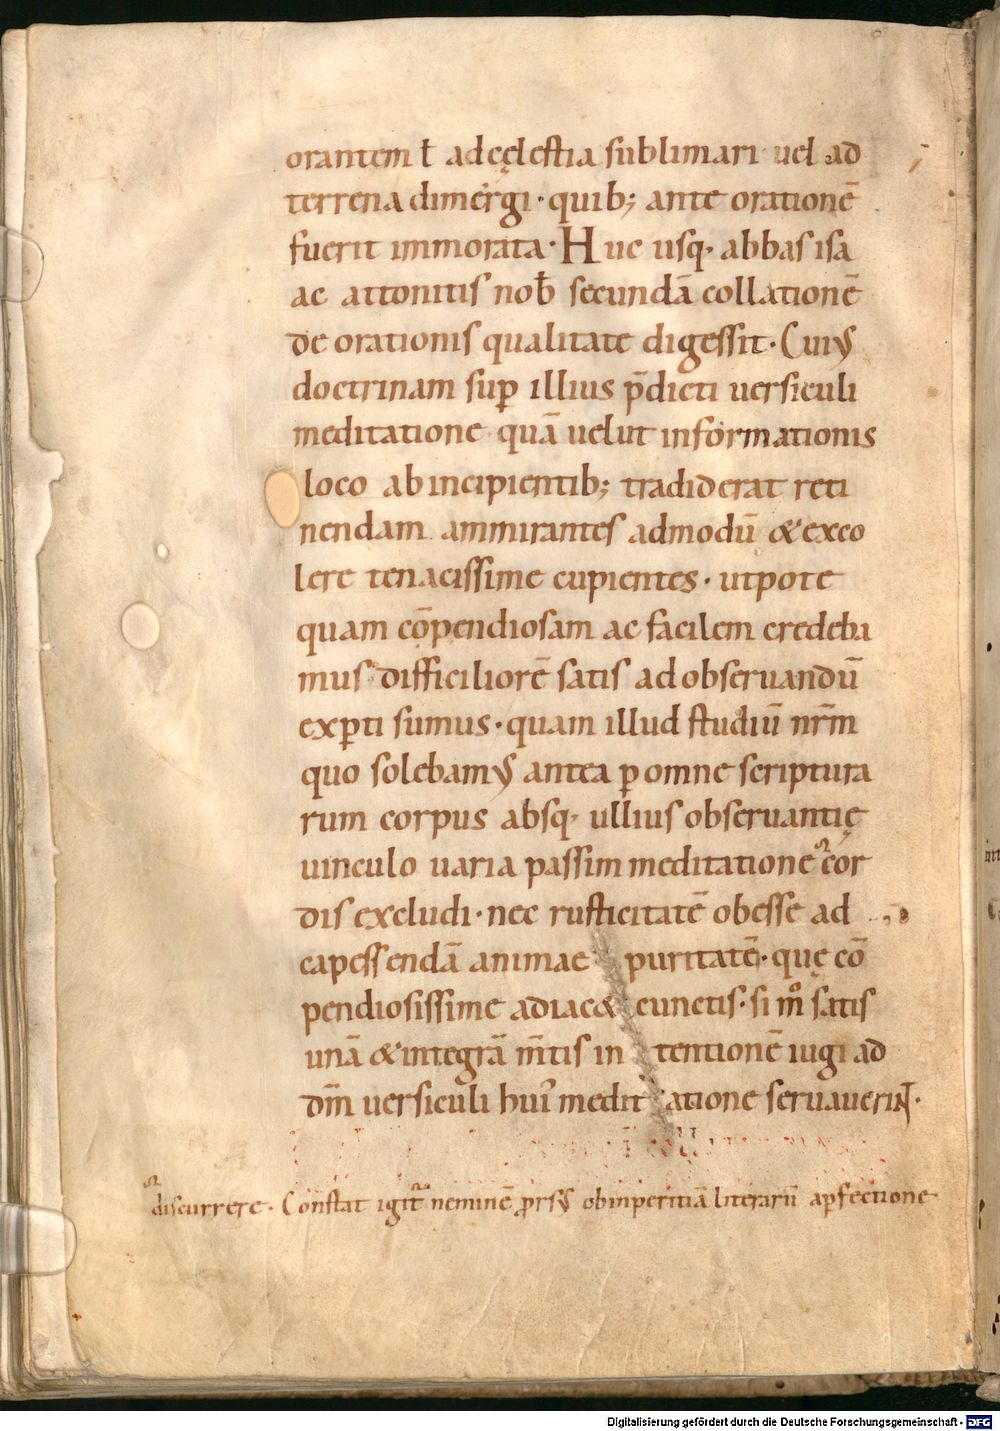 orantem ł ad cęlestia sublimari uel ad
terrena dimergi · quib; ante orationē
fuerit immorata · Huc usq· abbas isa
ac attonitis nob̄ secundā collationē
de orationis qualitate digessit · Cuiꝰ
doctrinam suꝑ illius p̄dicti uersiculi
meditatione quā uelut informationis
loco ab incipientib; tradiderat reti
nendam ammirantes admodū & exco
lere tenacissime cupientes · utpote
quam cōpendiosam ac facilem credeba
mus difficiliorē satis ad obseruandū
exꝑti sumus · quam illud studiū nr̄m
quo solebamꝰ antea ꝑ omne scriptura
rum corpus absq· ullius obseruantię
uinculo uaria passim meditatione cor
dis excludi · nec rusticitatē obesse ad
capessendā animae puritatē · quę cō
pendiosissime adiac& cunctis · si mͦ satis
unā & integrā m̄tis in tentionē iugi ad
dm̄ uersiculi huiꝰ medit atione seruauerint ·
discurrere · Constat igit᷑ neminē prorsꝰ ob inperitiā literarū a ꝑfectione
Digitalisierung gefördert durch die Deutsche Forschungsgemeinschaft - DFG